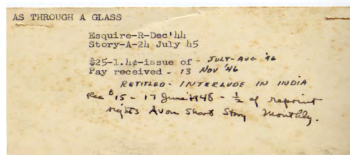 AS THROUGH A GLASS
Esquire-R-Dec'44
Story-A-24 July 45
$25-1.4¢-issue of - JULY-AUG '46
Pay received - 13 NOV '46
RETITLED - INTERLUDE IN INDIA
Rec $15 - 17 June 1948 - ½ of reprint
rights Avon Short Story Monthly.